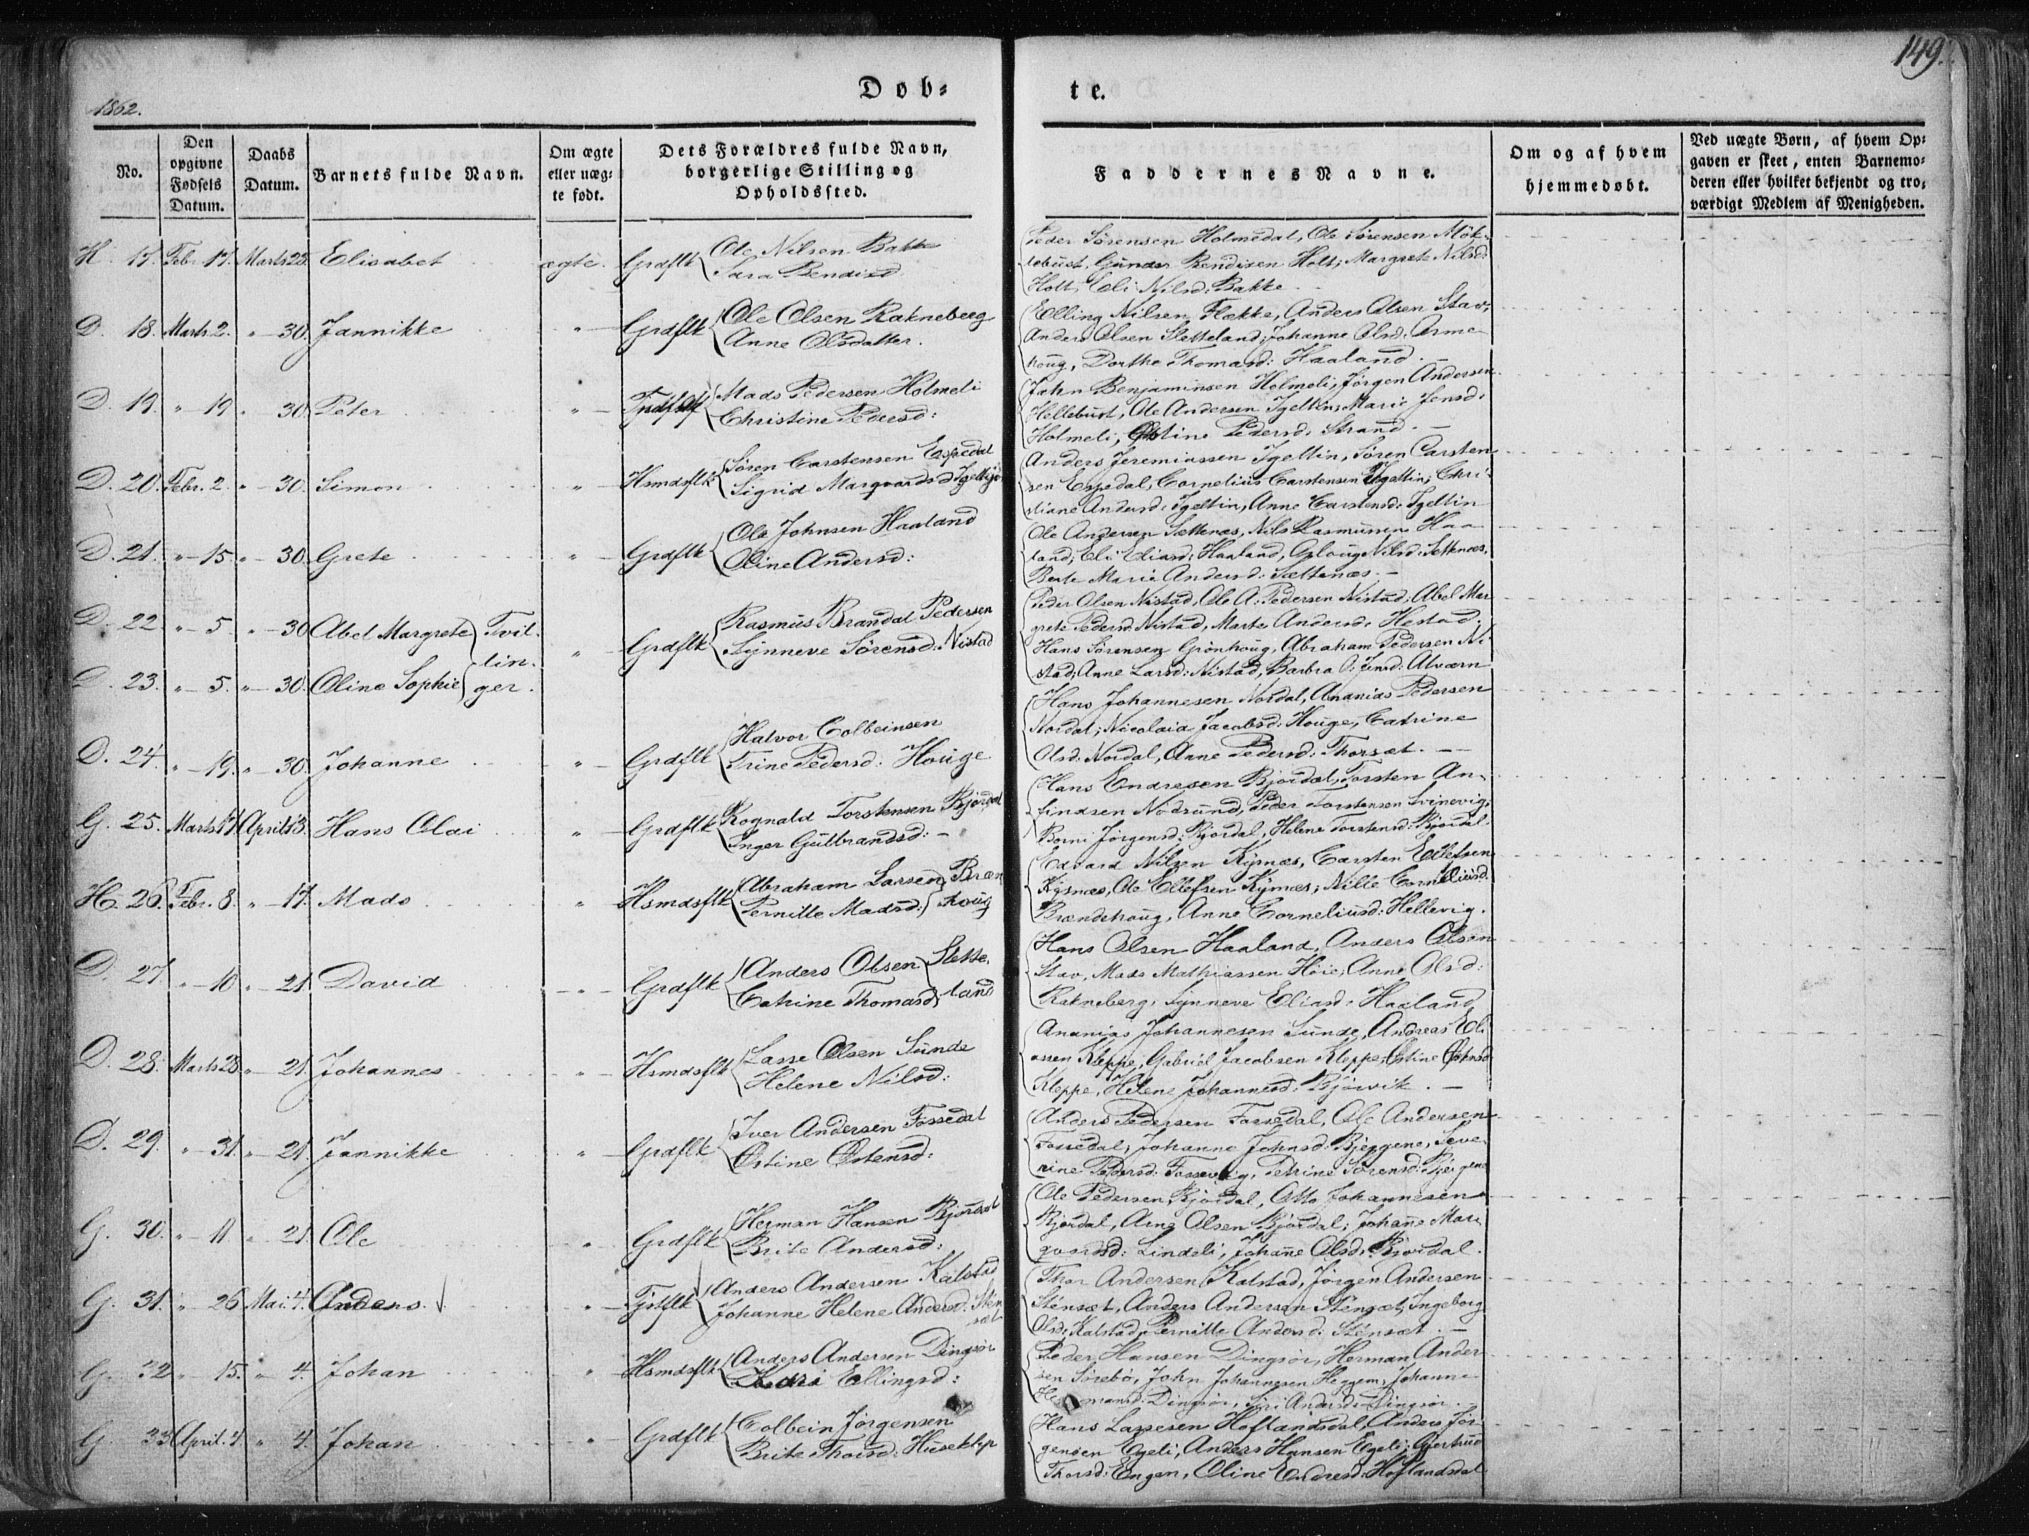 149.
Døb=
te.
1862.
No.
Den opgivne Fødsels Datum.
Daabs Datum.
Barnets fulde Navn.
Om ægte eller uæg= te født.
Dets Forældres fulde Navn, borgerlige Stilling og Opholdssted.
Faddernes Navne.
Om og af hvem hjemmedøbt.
Ved uægte Børn, af hvem Op= gaven er skeet, enten Barnemo= deren eller hvilket bekjendt og tro= værdigt Medlem af Menigheden.
H. 17. Feb. 17. Marts 23. Elisabet ægte. Grdflk Ole Nilsen Bakke
Sara Bendisd
Peder Sørensen Holmedal, Ole Sørensen Mök=
lebust, Gunder Bendisen Holt; Margrete Nilsd:
Holt, Eli Nilsd: Bakke
D. 18. Marts 2. " 30. Jannikke " Grdflk Ole Olsen Rakneberg
Anne Olsdatter.
Elling Nilsen Flekke, Anders Olsen Stav,
Anders Olsen Sletteland; Johanne Olsd: Arme-
houg, Dorthe Thomasd: Haaland. —
D. 19. " 19. " 30. Peter " Mads Pedersen Holmeli
Christine Pedersd:
John Benjaminsen Holmeli, Jørgen Andersen
Hellebust, Ole Andersen Igeltin; Marie Jensd:
Holmeli, Østine Pedersd: Strand. —
D. 20. Febr. 2. " 30. Simon " Hsmdsflk Søren Carstensen Espedal
Sigrid Margvardsd
Anders Jeremiassen Igeltin, Søren Carsten
sen Espedal, Cornelius Carstensen Igeltin; Chri-
stiane Andersd: Igeltin, Anne Carstensd: Igeltin
D. 21. " 15. " 30. Grete " Grdflk Ole Johnsen Haaland
Oline Andersd:
Ole Andersen Sættenæs, Nils Rasmussen Haa-
land; Eli Eliasd: Haaland, Nilsd: Settenæs,
Berte Marie Andersd: Sættenæs. —
D. 22. " 5. " 30. Abel Margrete Tvil.
lin.
D. 23. " 5. " 30. Oline Sophie ger.
" Grdflk Rasmus Brandal Pedersen
Synneve Sørensd: Nistad
Peder Olsen Nistad, Ole A: Pedersen Nistad; Abel Mar
grete Pedersd: Nistad, Marte Andersd: Hestad.
Hans Sørensen Grönhoug, Abraham Pedersen Ni-
stad; Anne Larsd: Nistad, Barbra O: Jensd: Alværn
D. 24. " 19. " 30. Johanne " Grdflk Halvor Colbeinsen
Trine Pedersd: Houge
Hans Johannesen Nordal, Ananias Pedersen
Nordal; Nicolaia Jacobsd: Houge, Catrine
Olsd: Nordal, Anne Pedersd: Thorsæt. — —
G. 25. Marts 17. April 13. Hans Olai " Grdflk Rognald Torstensen Bjørdal
Inger Gulbrandsd: —
Hans Endresen Bjordal, Torsten An-
findsen Nodsund, Peder Torstensen Svinevig;
Borni Jørgensd: Bjordal, Helene Torstensd: Bjordal.
H. 26. Febr. 8. " 17. Mads " Hsmdsflk Abraham Larsen Bræn
Pernille Madsd: houg
Edvard Nilsen Kysnæs, Carsten Ellefsen
Kysnæs, Ole Ellefsen Kysnæs; Nille Corneliusd:
Brændehoug, Anne Corneliusd: Hellevig.
D. 27. " 10. " 21. David " Grdflk Anders Olsen Slette
Catrine Thomasd land
Hans Olsen Haaland, Anders Olsen
Stav, Mads Mathiassen Høie; Anne Olsd:
Rakneberg, Synneve Eliasd: Haaland
D. 28. Marts 28. " 21. Johannes " Hsmdsflk Lasse Olsen Sunde
Helene Nilsd:
Ananias Johannesen Sunde, Andreas Eli-
assen Kleppe, Gabriel Jacobsen Kleppe; Østine Johnsd:
Kleppe, Helene Johannesd: Bjørvik. —
D. 29. " 31. " 21. Jannikke " Grdflk Iver Andersen Fossedal
Østine Østensd:
Anders Pedersen Fossedal, Ole Andersen
Fossedal; Johanne Johnsd: Bjeggene, Seve-
rine Pedersd: Fossevig, Petrine Sørensd:
G. 30. " 11 " 21. Ole " Grdflk Herman Hansen Bjordal
Brite Andersd:
Ole Pedersen Bjordal, Otto Johannesen
Bjordal, Arne Olsen Bjordal; Johanne Mar-
qvardsd: Lindeli, Johanne Olsd: Bjordal.
G. 31. " 26 Mai 4. Anders. " Tjstflk Anders Andersen Kalstad
Johanne Helene Andersd: Sten
sæt
Thor Andersen Kalstad, Jørgen Andersen
Stensæt, Anders Andersen Stensæt, Ingeborg
Olsd: Kalstad, Pernille Andersd: Stensæt. —
G. 32 " 15. " 4. Johan " Hsmdsflk Anders Andersen Dingsør
Kari Ellingsd:
Peder Hansen Dingsør, Herman Ander
sen Sørebø, John Johannesen Heggem; Johanne
Hermansd: Dingsør, Siri Andersd: Dingsør.
G. 33 April. 4. " 4. Johan " Grdflk Colbein Jørgensen
Brite Thorsd: Hieseklep
Hans Lassesen Hoflandsdal, Anders Jør-
gensen Egeli, Anders Hansen Egeli; Gjertrud
Thorsd: Engen, Oline Endresd: Hoflandsdal.